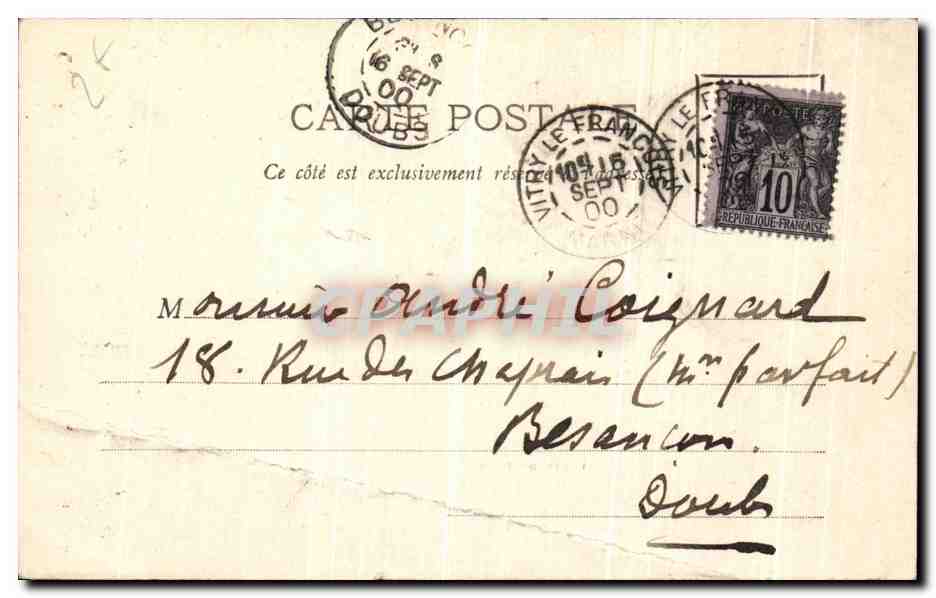 2x
16 SEPT
00
DOUBS
CARTE POSTALE
Ce côté est exclusivement réservé à l'adresse
VITRY LE FRANCOIS
10 16
SEPT
00
MARNE
VITRY LE FR
10
POSTE
10
REPUBLIQUE FRANCAISE
CPAPHIL
Monsieur André Coignard
18. Rue des Chaprais (mon parfait)
Besancon.
Doubs